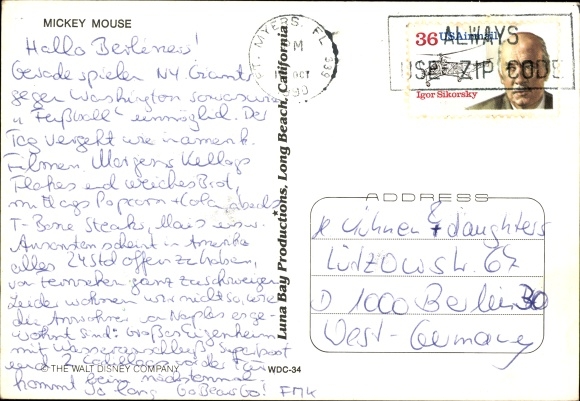 MICKEY MOUSE
Hallo Berliner!
Gerade spielen NY Giants
gegen Washington sowas wie
"Fußball" einmöglich. Der
Tag vergeht wie in amerik.
Filmen. Morgens Kellogs
Flakes und weiches Brot,
mittags Popcorn + Cola, abends
T-Bone Steaks, Mais usw.
Ansonsten scheint in Amerika
alles 24 Std offen zu haben,
von Fernsehen ganz zu schweigen
Leider wohnen wir nicht so, wie
die Anwohner von Naples
wohnt sind: Großes Eigenheim
mit Wasseranschluß, Superboot
und 2 Cadillacs vor der Tür
kommt beim nächstenmal
So long Go Bears Go! FMK
© THE WALT DISNEY COMPANY
WDC-34
Luna Bay Productions, Long Beach, California
FT. MYERS, FL 339
PM
OCT
ALWAYS
USE ZIP CODE
36 USAirmail
Igor Sikorsky
ADDRESS
& daughters
Lützowstr. 67
D 1000 Berlin 30
West-Germany